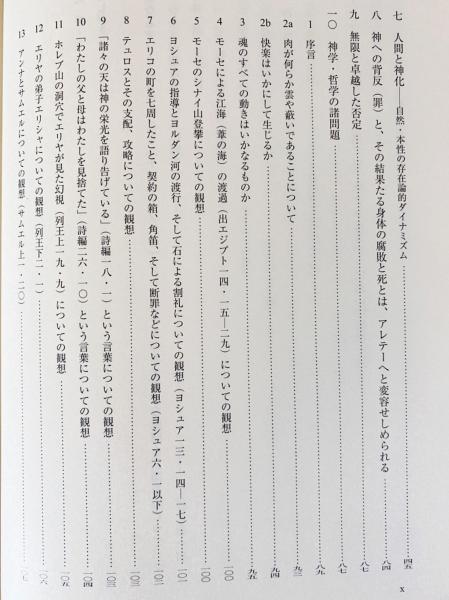 七 人間と神化——自然・本性の存在論的ダイナミズム……四五
八 神への背反(罪)と、その結果たる身体の腐敗と死とは、アレテーへと変容せしめられる……八四
九 無限と卓越した否定……八七
一〇 神学・哲学の諸問題……八七
1 序言……八九
2a 肉が何らか雲や蔽いであることについて……九三
2b 快楽はいかにして生じるか……九四
3 魂のすべての動きはいかなるものか……九五
4 モーセによる江海(葦の海)の渡過(出エジプト一四・一五—二九)についての観想……一〇〇
5 モーセのシナイ山登攀についての観想……一〇〇
6 ヨシュアの指導とヨルダン河の渡行、そして石による割礼についての観想(ヨシュア一三・一四—一七)……一〇一
7 エリコの町を七周したこと、契約の箱、角笛、そして断罪などについての観想(ヨシュア六・一以下)……一〇二
8 テュロスとその支配、攻略についての観想……一〇二
9 「諸々の天は神の栄光を語り告げている」(詩編一八・一)という言葉についての観想……一〇三
10 「わたしの父と母はわたしを見捨てた」(詩編二六・一〇)という言葉についての観想……一〇四
11 ホレブ山の洞穴でエリヤが見た幻視(列王上一九・九)についての観想……一〇五
12 エリヤの弟子エリシャについての観想(列王下二・一)……一〇六
13 アンナとサムエルについての観想(サムエル上一・二〇)……一〇七
x